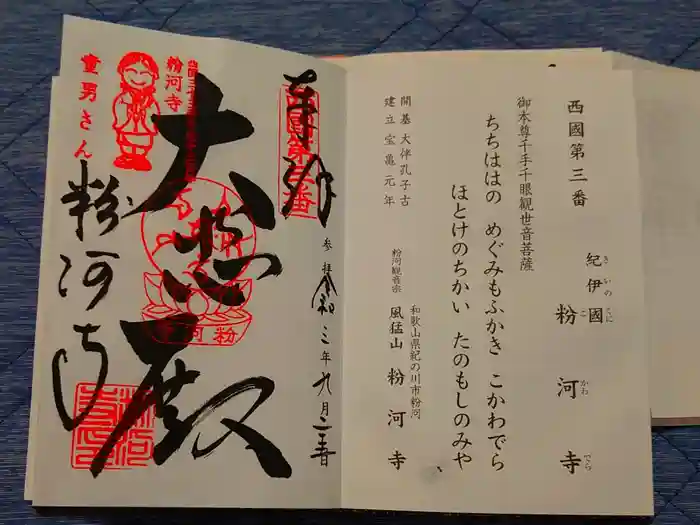 西國第三番
紀伊國 粉河寺
きいのくに こかわでら
御本尊千手千眼観世音菩薩
ちちははの めぐみもふかき こかわでら
ほとけのちかい たのもしのみや
開基 大伴孔子古
建立 宝亀元年
和歌山県紀の川市粉河
粉河観音宗
風猛山 粉河寺
奉拝
参拝 令和三年九月二三日
大悲殿
粉河寺
粉河寺
童男さん
粉河